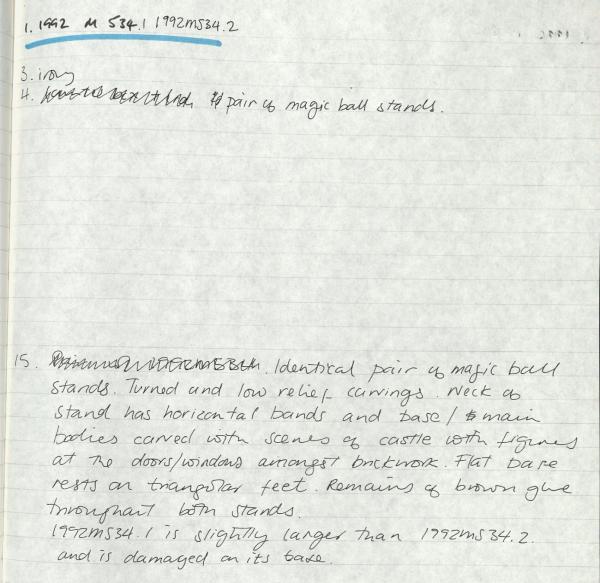 1. 1992 M 534.1 1992M534.2
3. ivory
4. pair of magic ball stands.
15. Identical pair of magic ball
stands. Turned and low relief carvings. Neck of
stand has horizontal bands and base/ main
bodies carved with scenes of castle with figures
at the doors/windows amongst brickwork. Flat base
rests on triangular feet. Remains of brown glue
throughout both stands.
1992M534.1 is slightly larger than 1992M534.2.
and is damaged on its base.